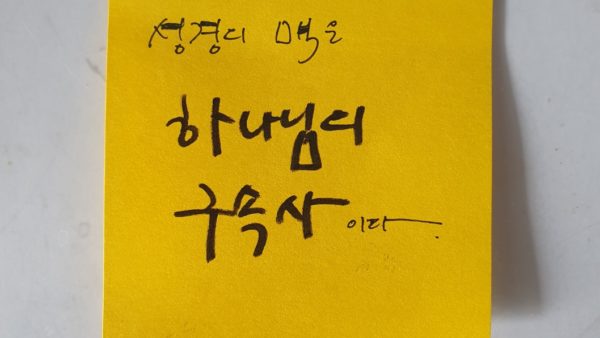 성경의 맥은
하나님의
구속사이다.